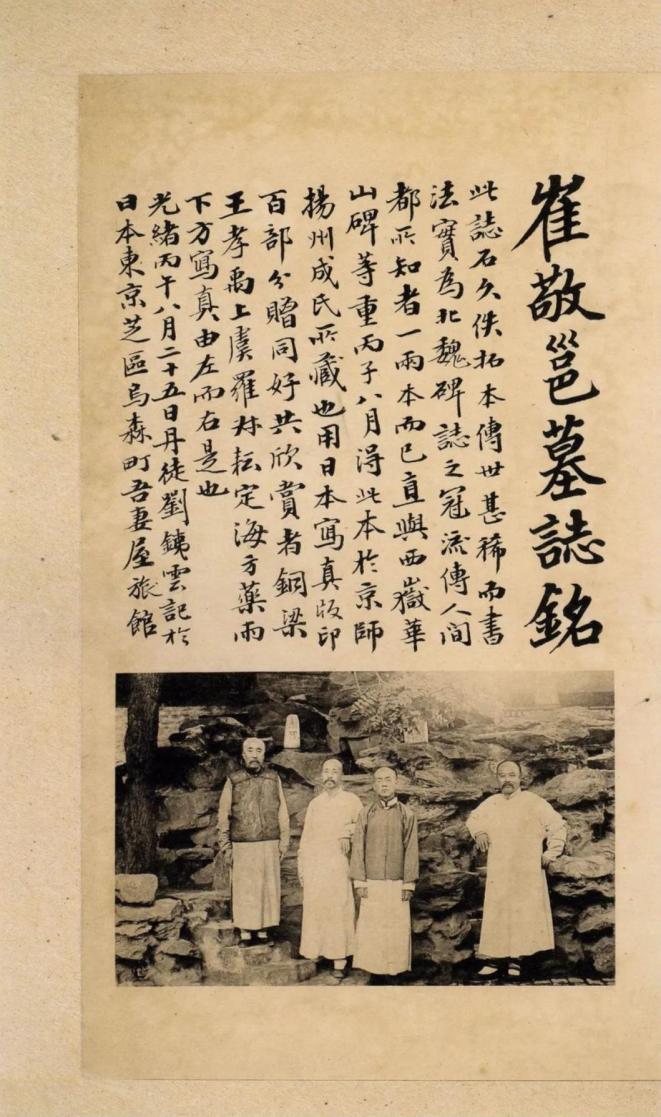 崔敬邕墓誌銘
此誌石久佚拓本傳世甚稀而書
法實為北魏碑誌之冠流傳人間
都所知者一兩本而已直與西嶽華
山碑等重丙子八月得此本於京師
揚州成氏所藏也用日本寫真版印
百部分贈同好共欣賞者銅梁
王孝禹上虞羅叔耘定海方藥雨
下方寫真由左而右是也
光緒丙午八月二十五日丹徒劉鐵雲記於
日本東京芝區烏森町吾妻屋旅館